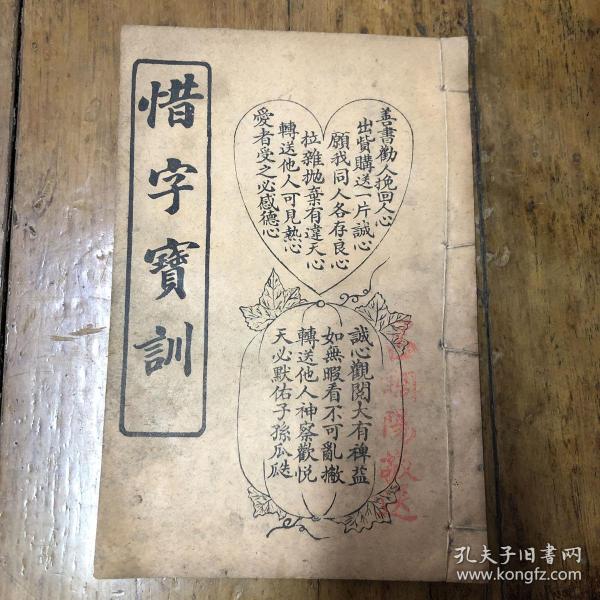 惜字寶訓
善書勸人挽回人心
出貲購送一片誠心
願我同人各存良心
拉雜抛棄有違天心
轉送他人可見熱心
愛者受之必感德心
誠心觀閱大有裨益
如無暇看不可亂撇
轉送他人神察歡悅
天必默佑子孫瓜瓞
陽敬送
孔夫子旧书网
www.kongfz.com